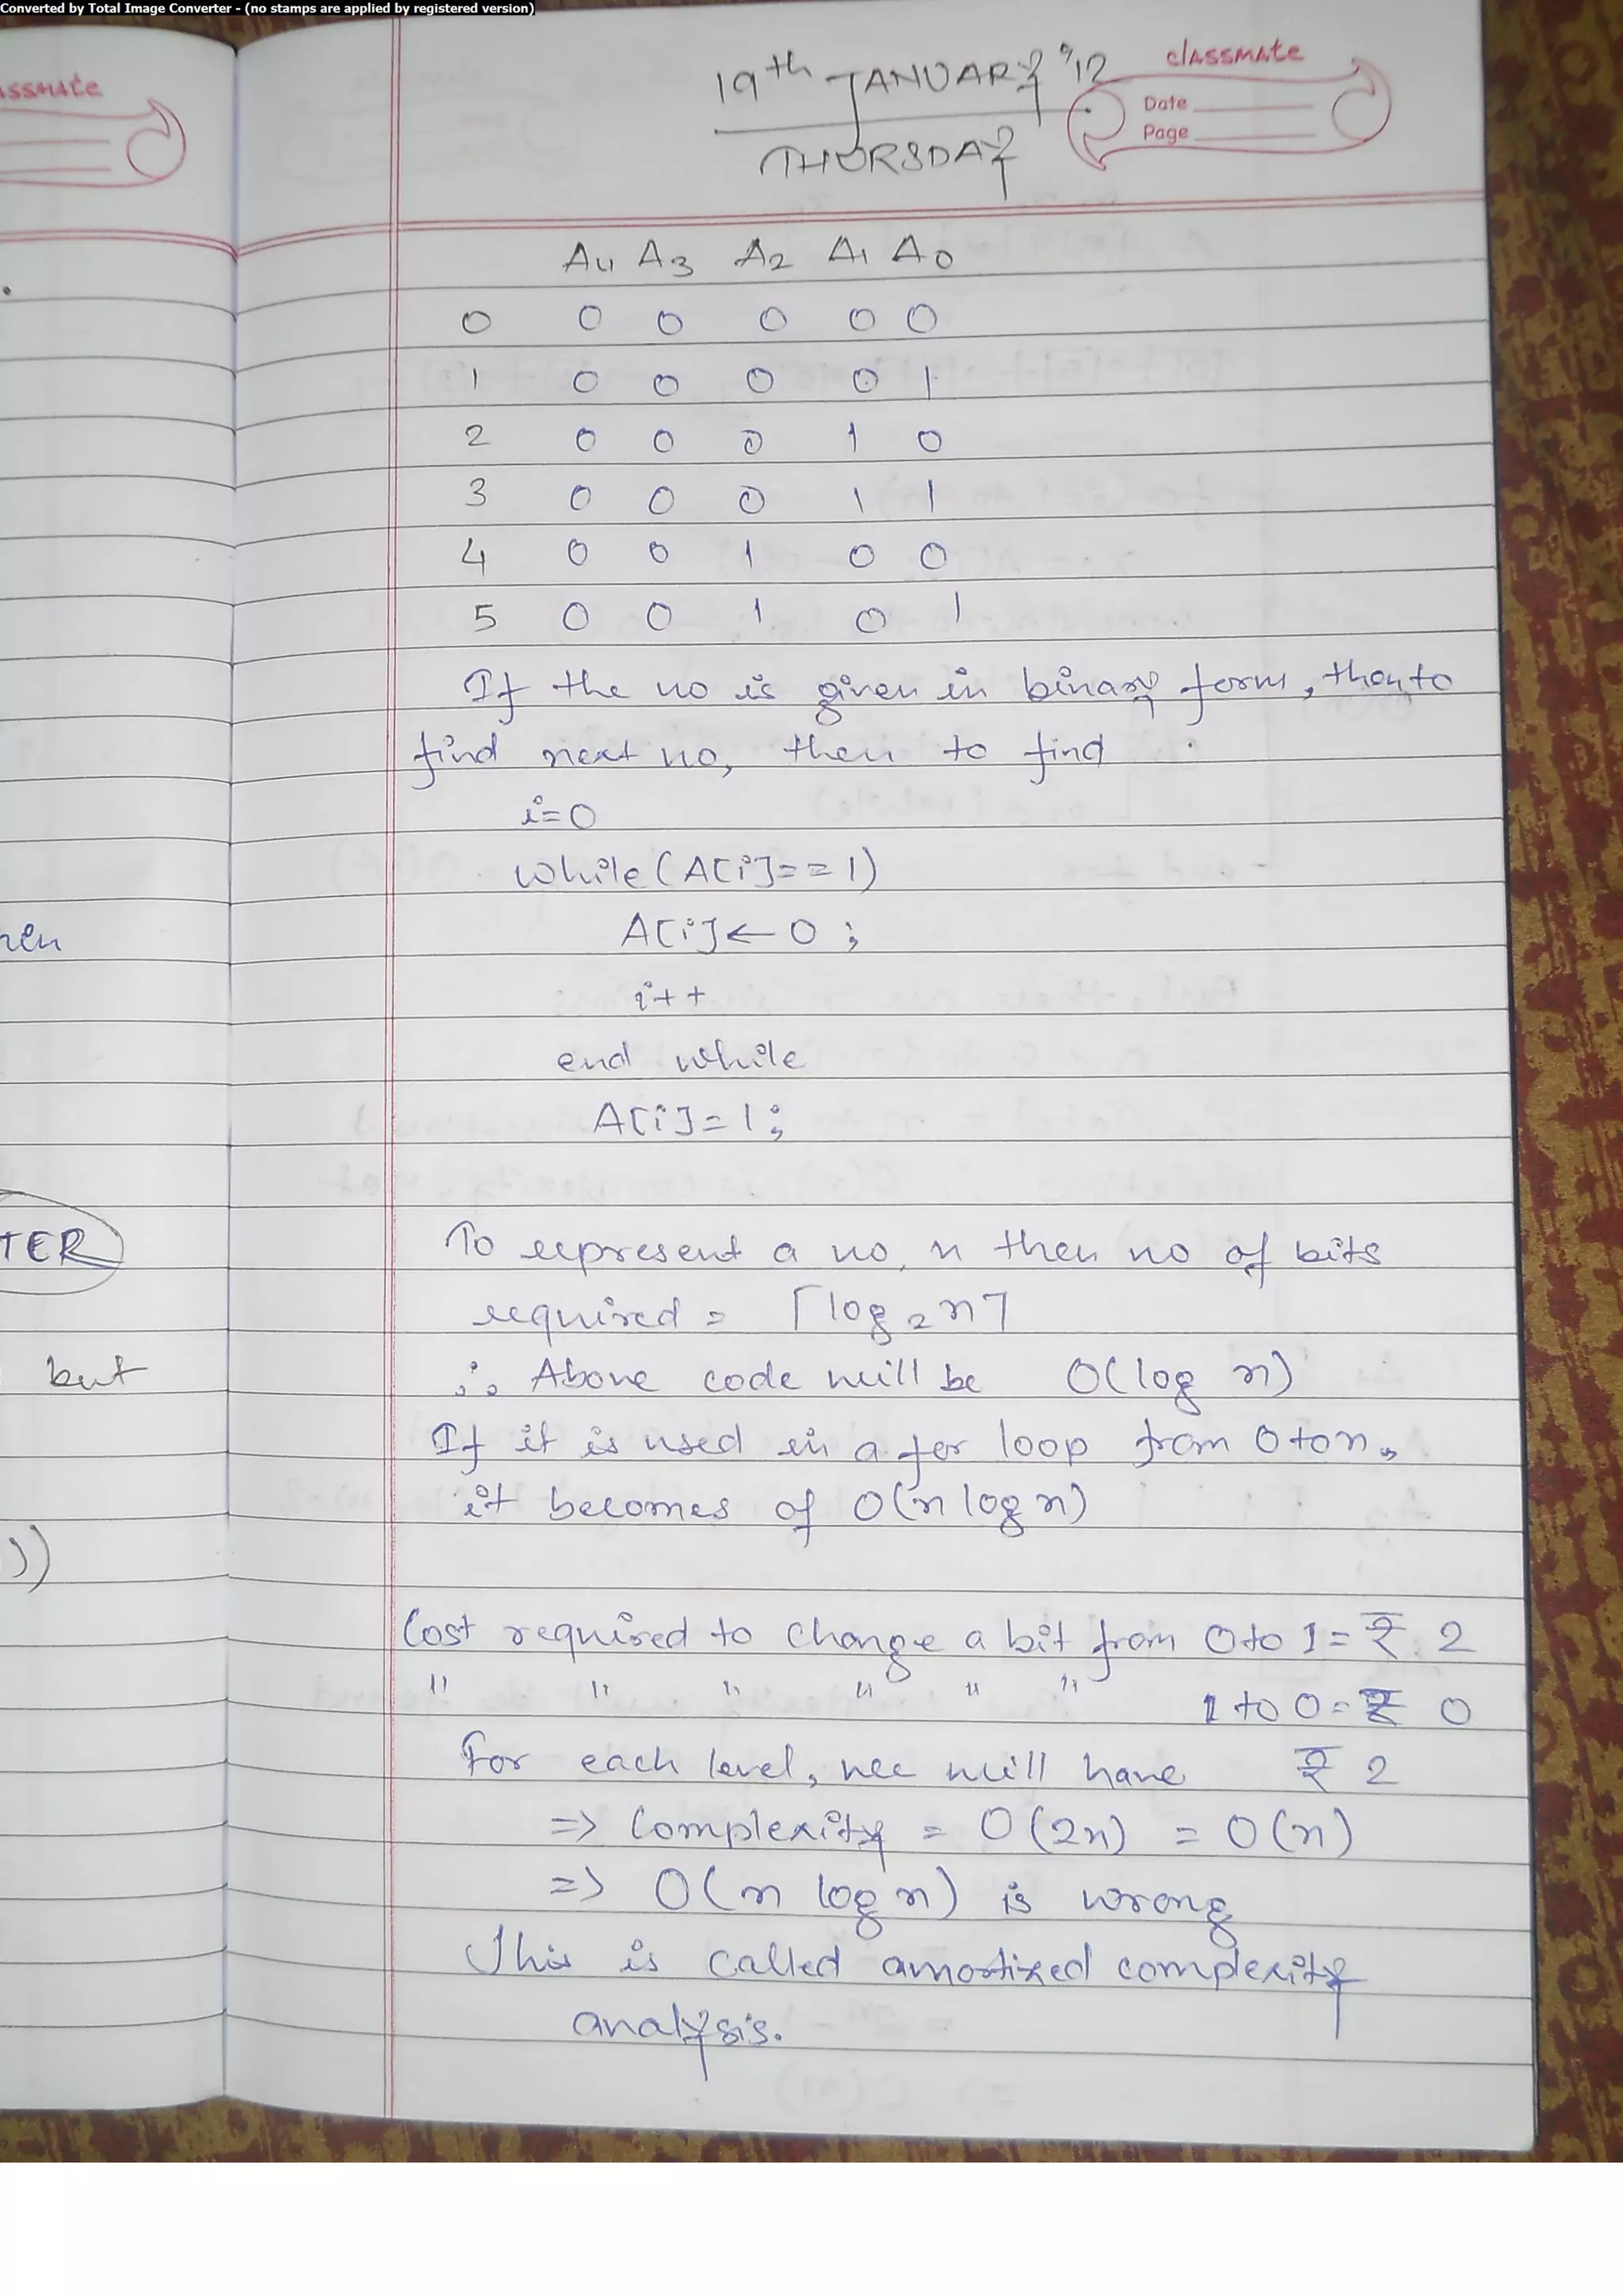 Converted by Total Image Converter - (no stamps are applied by registered version)
assmate
19th JANUARY '12
THURSDAY
classmate
Date
Page
A4 A3 A2 A1 A0
0 0 0 0 0 0
1 0 0 0 0 1
2 0 0 0 1 0
3 0 0 0 1 1
4 0 0 1 0 0
5 0 0 1 0 1
If the no is given in binary form, then to
find next no, then to find
i=0
while(A[i]==1)
A[i]←0;
i++
end while
A[i]=1;
To represent a no, n then no of bits
required = ⌈log₂n⌉
∴ Above code will be O(log n)
If it is used in a for loop from 0 to n,
it becomes of O(n log n)
Cost required to change a bit from 0 to 1 = ₹ 2
" " " " " " 1 to 0 = ₹ 0
For each level, we will have ₹ 2
=> Complexity = O(2n) = O(n)
=> O(n log n) is wrong
This is called amortized complexity
analysis.
TER
but
))